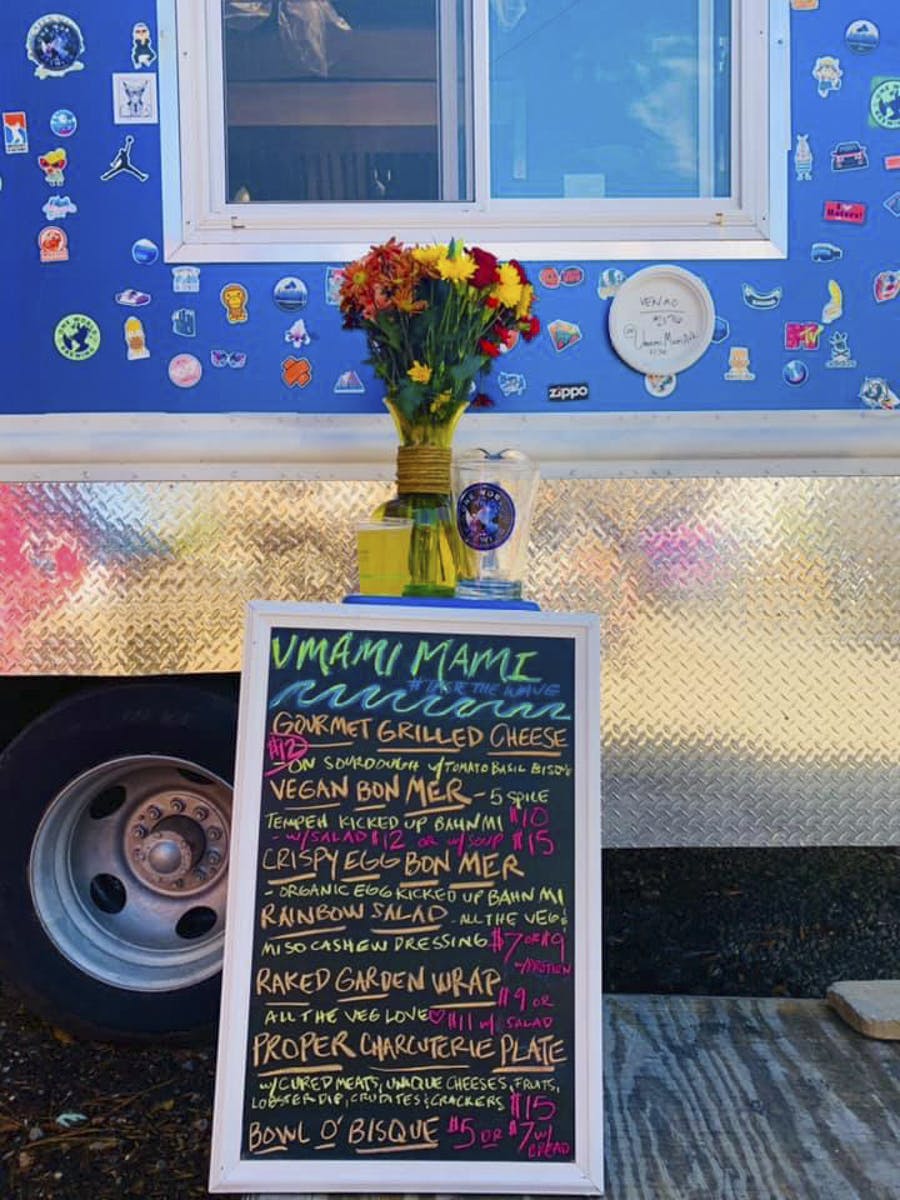 I ♥ Haters!
VENMO
UmamiMamiAVL
MTV
zippo
UMAMI MAMI
#TASTE THE WAVE
GOURMET GRILLED CHEESE
$12
- ON SOURDOUGH w/TOMATO BASIL BISQUE
VEGAN BON MER - 5 SPICE
TEMPEH KICKED UP BAHN MI $10
- w/SALAD $12 OR w/SOUP $15
CRISPY EGG BON MER
- ORGANIC EGG KICKED UP BAHN MI
RAINBOW SALAD - ALL THE VEG &
MISO CASHEW DRESSING $7 OR $9
w/PROTEIN
RAKED GARDEN WRAP $9 OR
ALL THE VEG LOVE♡ $11 w/ SALAD
PROPER CHARCUTERIE PLATE
w/CURED MEATS, UNIQUE CHEESES, FRUITS,
LOBSTER DIP, CRUDITES & CRACKERS $15
BOWL O' BISQUE $5 OR $7 w/
BREAD